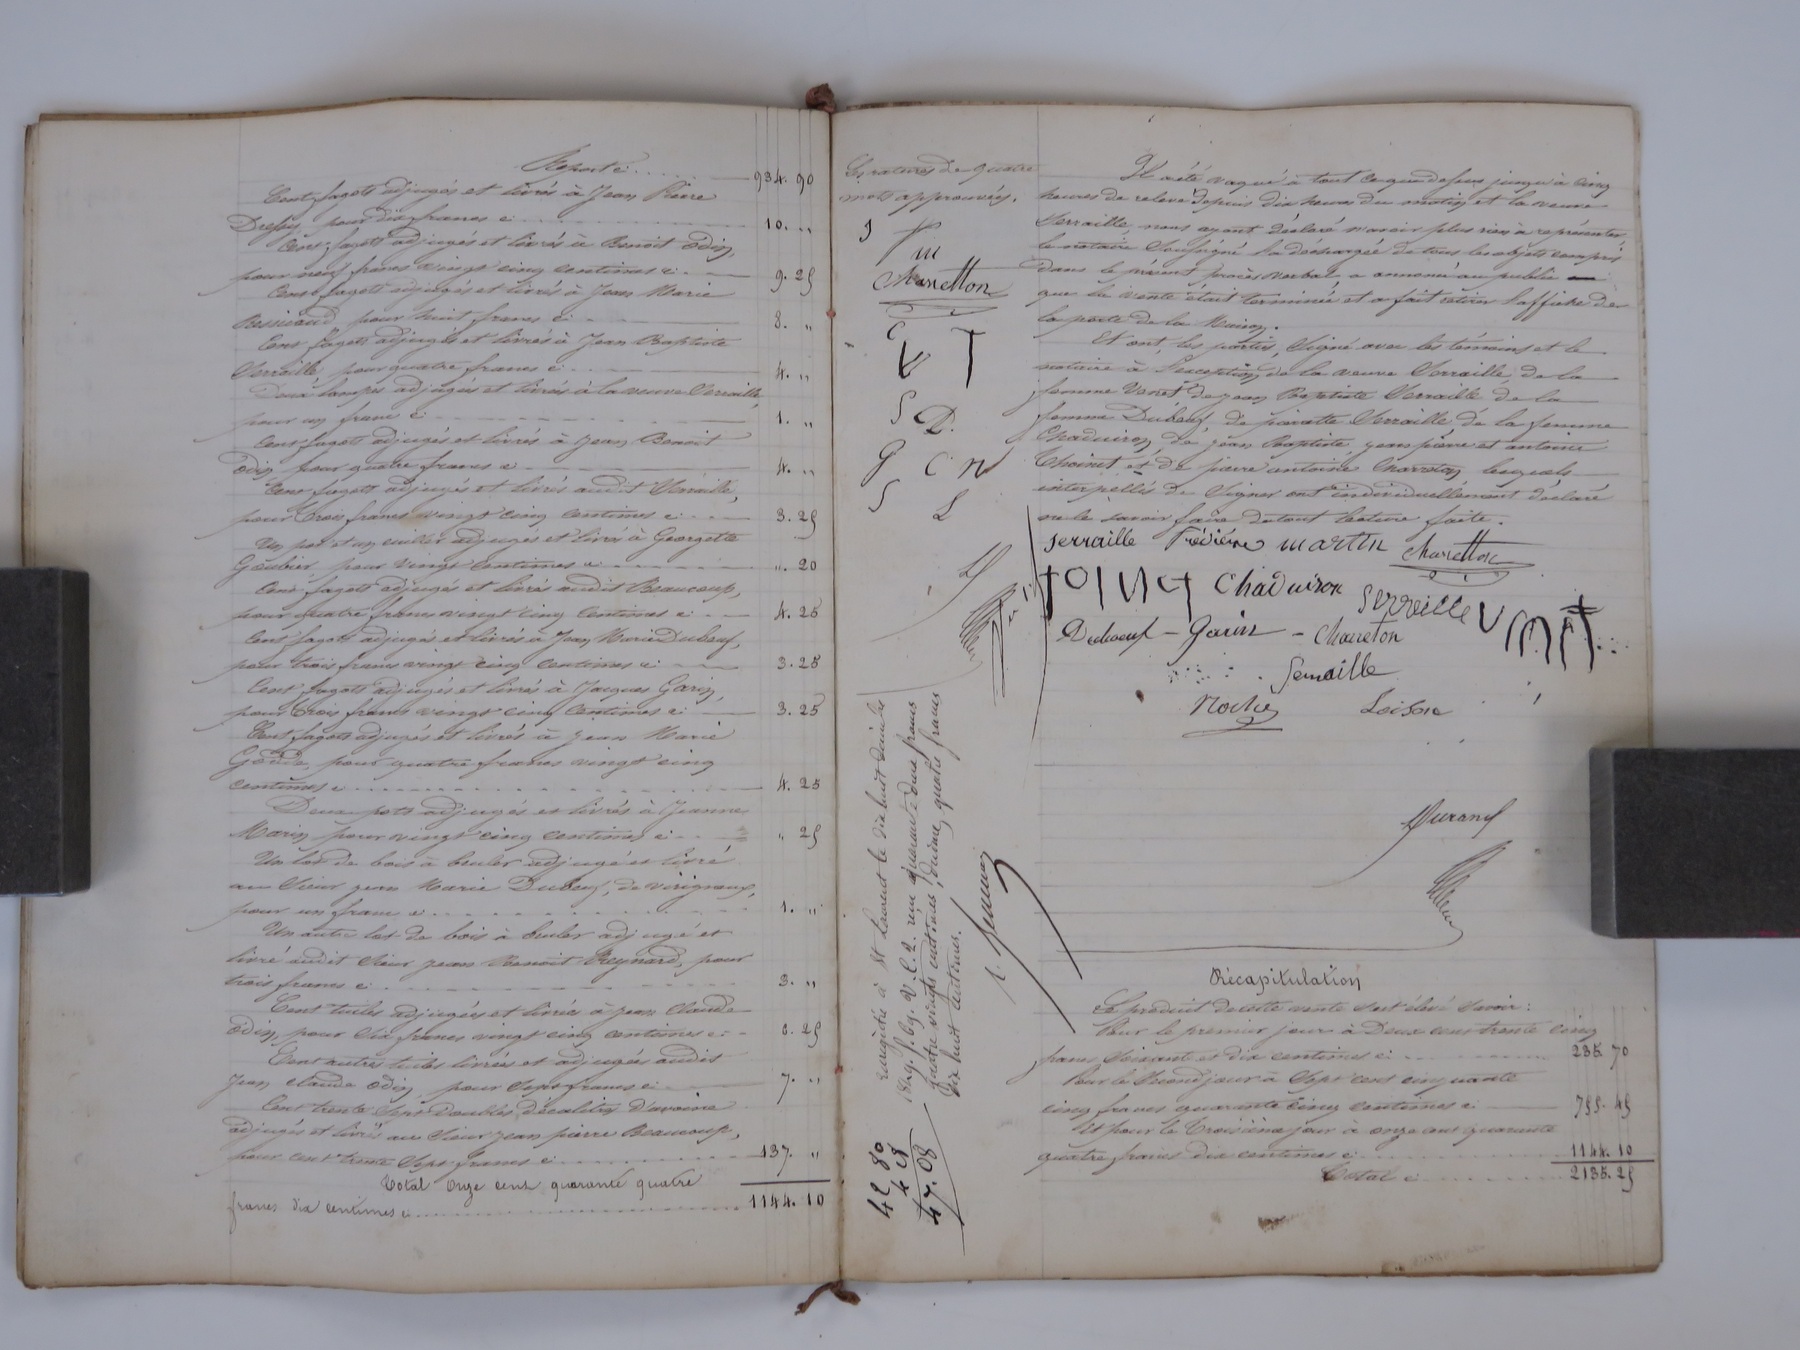 Report ci . . . . . 934. 90
Cent fagots adjugés et livrés à Jean Pierre
pour dix francs ci . . . . 10. "
Cent fagots adjugés et livrés à Benoit Odin,
pour neuf francs vingt cinq centimes ci. — 9. 25
Cent fagots adjugés et livrés à Jean Marie
pour huit francs ci . . . 8. "
Cent fagots adjugés et livrés à Jean Baptiste
Serraille pour quatre francs ci . . . 4. "
Deux lampes adjugées et livrés à la veuve Serraille,
pour un franc ci . . . 1. "
Cent fagots adjugés et livrés à Jean Benoit
Odin pour quatre francs ci . . . 4. "
Cent fagots adjugés et livrés audit Serraille,
pour trois francs vingt cinq centimes ci . . . 3. 25
Un pot et un cuiller adjugés et livrés à Georgette
pour vingt centimes ci . . . ". 20
Cent fagots adjugés et livrés audit Beaucoup,
pour quatre francs vingt cinq centimes ci . . . 4. 25
Cent fagots adjugés et livrés à Jean Marie Dubeuf,
pour trois francs vingt cinq centimes ci . . . 3. 25
Cent fagots adjugés et livrés à Jacques Garin,
pour trois francs vingt cinq centimes ci — 3. 25
Cent fagots adjugés et livrés à Jean Marie
pour quatre francs vingt cinq
centimes ci . . . 4. 25
Deux pots adjugés et livrés à Jeanne
Marin pour vingt cinq centimes ci . . . " 25
Un lot de bois à bruler adjugé et livré
au Sieur Jean Marie Dubeuf, de Virigneux,
pour un franc ci . . . 1. "
Un autre lot de bois à bruler adjugé et
livré audit Sieur Jean Benoit Reynard, pour
trois francs ci . . . 3. "
Cent tuiles adjugées et livrées à Jean Claude
Odin, pour six francs vingt cinq centimes ci . . 6. 25
Cent autres tuiles livrées et adjugées audit
Jean Claude Odin, pour sept francs ci . — 7. "
Cent trente sept doubles décalitres d'avoine
adjugés et livrés au Sieur Jean Pierre Beaucoup,
pour cent trente sept francs ci . . . 137. "
Total Onze cent quarante quatre
francs dix centimes ci . . . 1144. 10
Les ratures de quatre
mots approuvées.
S
m
Charretton
C
V T
S D.
G C N
S L
enregistré à St Laurent le dix huit
reçu quarante deux francs
quatre vingts centimes, quatre francs
dix huit centimes.
42 80
4 28
47. 08
Il a été vaqué à tout ce que dessus jusqu'à cinq
heures de relevé depuis dix heures du matin et la veuve
Serraille, nous ayant déclaré n'avoir plus rien à représenter
le notaire soussigné l'a déchargée de tous les objets compris
dans le présent procès verbal, a annoncé au public —
que la vente était terminée et a fait retirer l'affiche de
la porte de la Maison.
Et ont, les parties, signé avec les témoins et le
notaire à l'exception de la veuve Serraille, de la
femme Venet de Jean Baptiste Serraille de la
femme Dubeuf, de Pierrette Serraille de la femme
Chaduiron, de Jean Baptiste, Jean Pierre et Antoine
et de Pierre Antoine Charreton lesquels
interpellés de signer ont individuellement déclaré
ne le savoir faire de tout lecture faite.
Serraille martin Charetton
Chaduiron Serraille
Duboeuf — Garin — Charreton
Serraille
Durand
Récapitulation
Le produit de cette vente s'est élevé savoir :
Pour le premier jour à Deux cent trente cinq
francs soixante et dix centimes ci . . . 235 70
Pour le second jour à sept cent cinquante
cinq francs quarante cinq centimes ci — 755. 45
Et pour le troisième jour à onze cent quarante
quatre francs dix centimes ci . . . 1144. 10
Total ci . . . 2135. 25